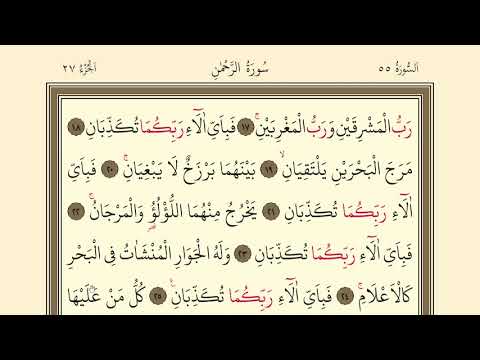 اَلسُّورَةُ ٥٥ سُورَةُ الرَّحْمٰنِ اَلْجُزْءُ ٢٧
رَبُّ الْمَشْرِقَيْنِ وَرَبُّ الْمَغْرِبَيْنِۚ ١٧ فَبِاَيِّ اٰلَٓاءِ رَبِّكُمَا تُكَذِّبَانِ ١٨
مَرَجَ الْبَحْرَيْنِ يَلْتَقِيَانِۙ ١٩ بَيْنَهُمَا بَرْزَخٌ لَا يَبْغِيَانِۚ ٢٠ فَبِاَيِّ
اٰلَٓاءِ رَبِّكُمَا تُكَذِّبَانِ ٢١ يَخْرُجُ مِنْهُمَا اللُّؤْلُؤُ۬ وَالْمَرْجَانُۚ ٢٢
فَبِاَيِّ اٰلَٓاءِ رَبِّكُمَا تُكَذِّبَانِ ٢٣ وَلَهُ الْجَوَارِ الْمُنْشَاٰتُ فِي الْبَحْرِ
كَالْاَعْلَامِۚ ٢٤ فَبِاَيِّ اٰلَٓاءِ رَبِّكُمَا تُكَذِّبَانِ۟ ٢٥ كُلُّ مَنْ عَلَيْهَا